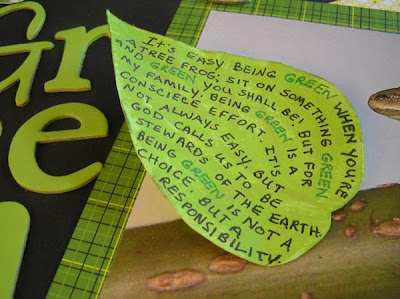 Gr
ee
IT'S EASY BEING GREEN WHEN YOU'RE
ANTREE FROG; SIT ON SOMETHING GREEN
AND GREEN YOU SHALL BE! BUT FOR
MY FAMILY, BEING GREEN IS A
CONSCIECE EFFORT. IT'S
NOT ALWAYS EASY BUT
GOD CALLS US TO BE
STEWARDS OF THE EARTH.
BEING GREEN IS NOT A
CHOICE BUT A
RESPONSIBILITY.